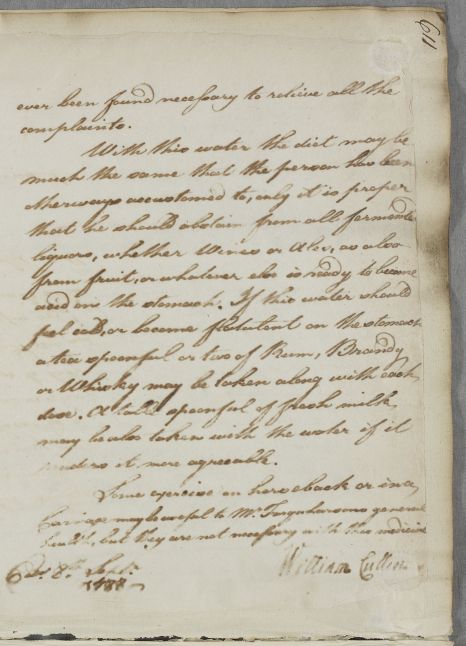 119
ever been found necessary to relieve all the
complaints.
With this water the diet may be
much the same that the person has been
otherways accustomed to, only it is proper
that he should abstain from all fermented
liquors, whether Wines or Ales, as also
from fruit, or whatever else is ready to become
acid on the stomach. If this water should
feel cold, or become flatulent on the stomach
a tea spoonful or two of Rum, Brandy
or Whisky may be taken along with each
dose. A table spoonful of fresh milk
may be also taken with the water if it
renders it more agreeable.
Some exercise on horseback or in a
Carriage may be useful to Mr. Farquharsons general
health, but they are not necessary with this medicine
Edr. 8th Septr.
1788
William Cullen